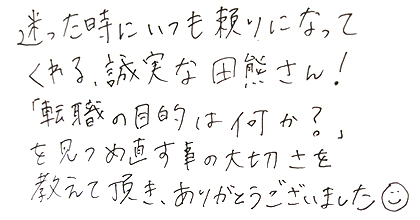 迷った時にいつも頼りになって
くれる、誠実な田熊さん！
「転職の目的は何か？」
を見つめ直す事の大切さを
教えて頂き、ありがとうございました☺